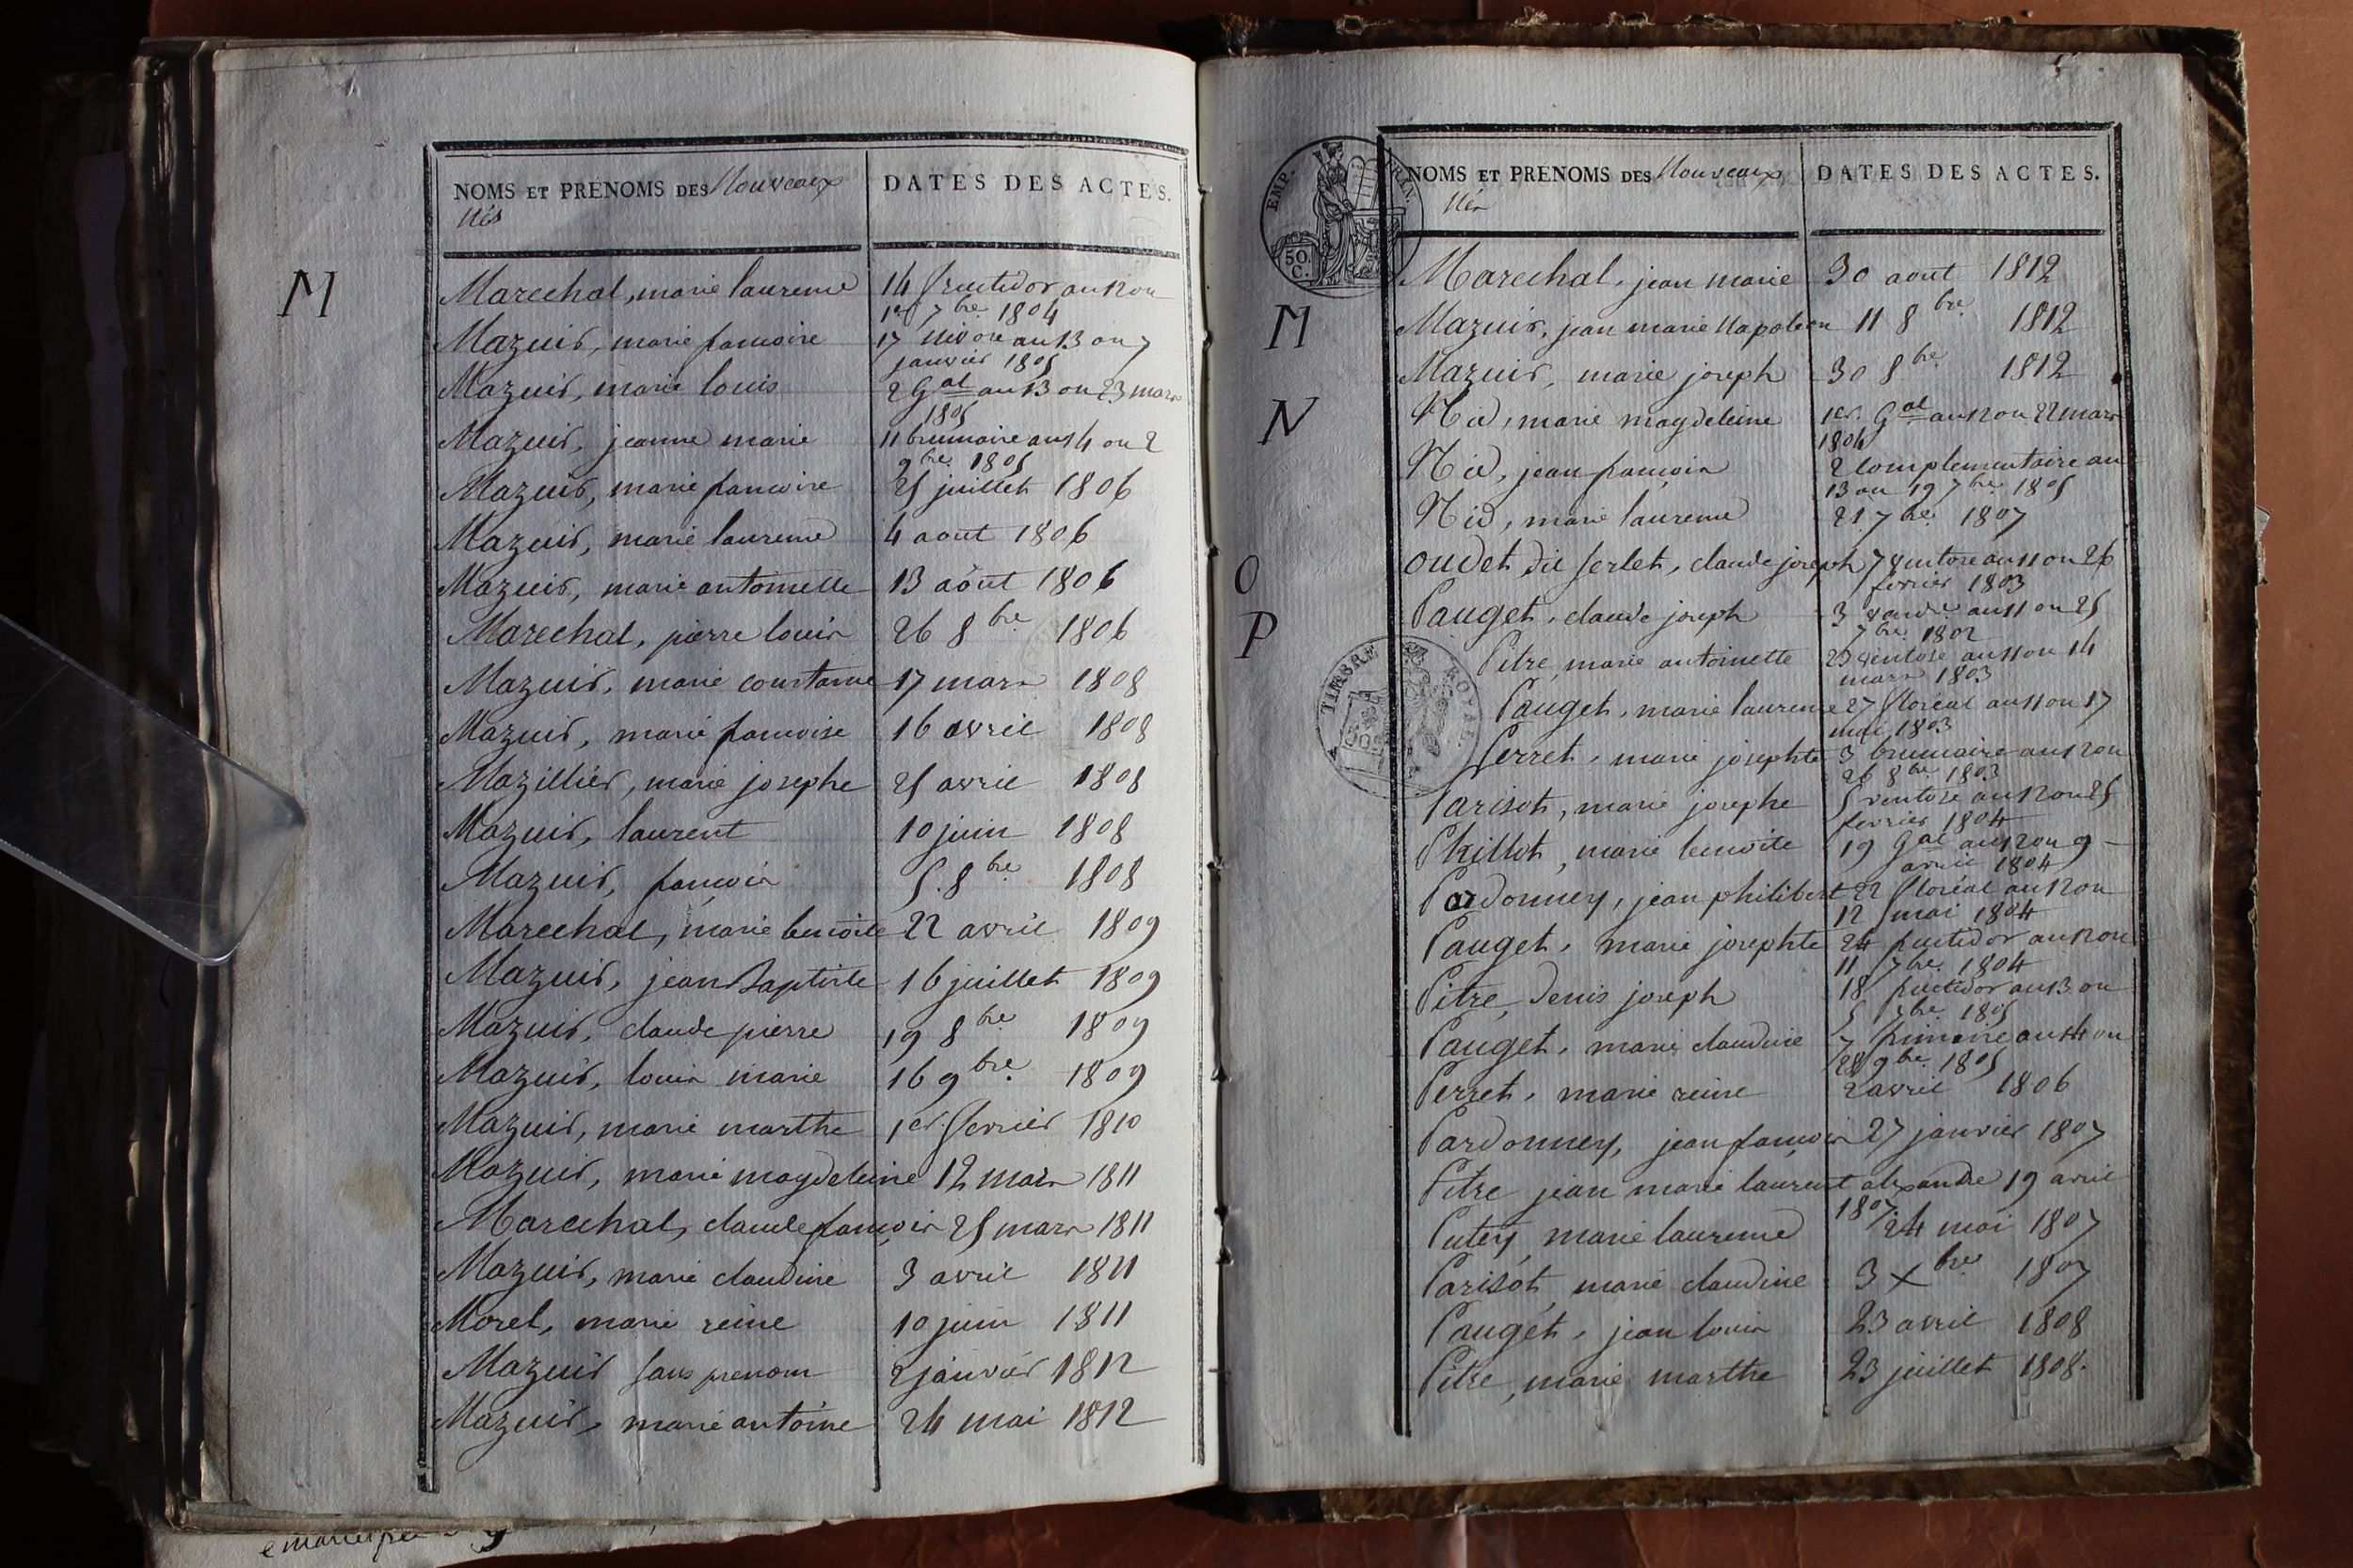 NOMS ET PRÉNOMS DES Nouveaux
Nés
DATES DES ACTES.
M
Marechal, marie laurence 14 fructidor an 12 ou
1er 7bre 1804
Mazuir, marie francoise 17 nivose an 13 ou 7
janvier 1805
Mazuir, marie louis 2 Gal an 13 ou 23 mars
1805
Mazuir, jeanne marie 11 brumaire an 14 ou 2
9bre 1805
Mazuir, marie francoise 25 juillet 1806
Mazuir, marie laurence 4 aout 1806
Mazuir, marie antoinette 13 aout 1806
Marechal, pierre louis 26 8bre 1806
Mazuir, marie constance 17 mars 1808
Mazuir, marie francoise 16 avril 1808
Mazillier, marie josephe 25 avril 1808
Mazuir, laurent 10 juin 1808
Mazuir, françois 5. 8bre 1808
Marechal, marie benoite 22 avril 1809
Mazuir, jean Baptiste 16 juillet 1809
Mazuir, claude pierre 19 8bre 1809
Mazuir, louis marie 16 9bre 1809
Mazuir, marie marthe 1er fevrier 1810
Mazuir, marie magdeleine 12 mars 1811
Marechal, claude françois 25 mars 1811
Mazuir, marie claudine 3 avril 1811
Morel, marie reine 10 juin 1811
Mazuir sans prenom 2 janvier 1812
Mazuir, marie antoine 24 mai 1812
NOMS ET PRÉNOMS DES Nouveaux
Nés
DATES DES ACTES.
EMP.
50.
C.
Marechal, jean marie 30 aout 1812
M
Mazuir, jean marie Napoleon 11 8bre 1812
Mazuir, marie joseph 30 8bre 1812
N
Nid, marie magdeleine 1er. Gal an 12 ou 22 mars
1804
Nid, jean françois 2 Complementaire an
13 ou 19 7bre 1805
Nid, marie laurence 21 7bre 1807
O
oudet dit ferlet, claude joseph 7 ventose an 11 ou 26
fevrier 1803
P
Pauget, claude joseph 3 vendre an 11 ou 25
7bre 1802
TIMBRE ROYAL
Pitre, marie antoinette 23 ventose an 11 ou 14
mars 1803
Pauget, marie laurence 27 floréal an 11 ou 17
mai 1803
Perret, marie josephte 3 brumaire an 12 ou
26 8bre 1803
Parisot, marie josephe 5 ventose an 12 ou 25
fevrier 1804
Phillot, marie benoite 19 Gal an 12 ou 9
avril 1804
Pardonney, jean philibert 22 floréal an 12 ou
12 mai 1804
Pauget, marie josephte 24 fructidor an 12 ou
11 7bre 1804
Pitre, denis joseph 18 fructidor an 13 ou
5 7bre 1805
Pauget, marie claudine 7 frimaire an 14 ou
28 9bre 1805
Perret, marie reine 2 avril 1806
Pardonney, jean françois 27 janvier 1807
Pitre jean marie laurent alexandre 19 avril
1807
Putey, marie laurence 24 mai 1807
Parisot, marie claudine 3 Xbre 1807
Pauget, jean louis 23 avril 1808
Pitre, marie marthe 23 juillet 1808.